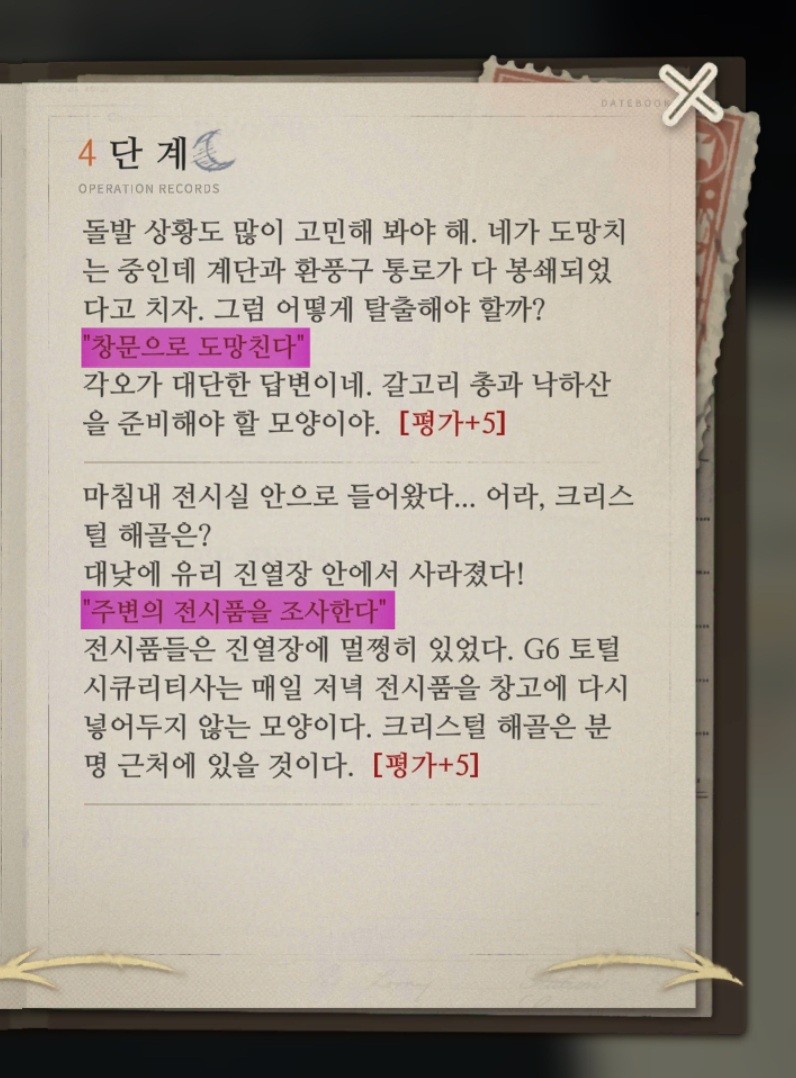 DATEBOOK
4 단 계
OPERATION RECORDS
돌발 상황도 많이 고민해 봐야 해. 네가 도망치
는 중인데 계단과 환풍구 통로가 다 봉쇄되었
다고 치자. 그럼 어떻게 탈출해야 할까?
"창문으로 도망친다"
각오가 대단한 답변이네. 갈고리 총과 낙하산
을 준비해야 할 모양이야. [평가+5]
마침내 전시실 안으로 들어왔다... 어라, 크리스
털 해골은?
대낮에 유리 진열장 안에서 사라졌다!
"주변의 전시품을 조사한다"
전시품들은 진열장에 멀쩡히 있었다. G6 토털
시큐리티사는 매일 저녁 전시품을 창고에 다시
넣어두지 않는 모양이다. 크리스털 해골은 분
명 근처에 있을 것이다. [평가+5]